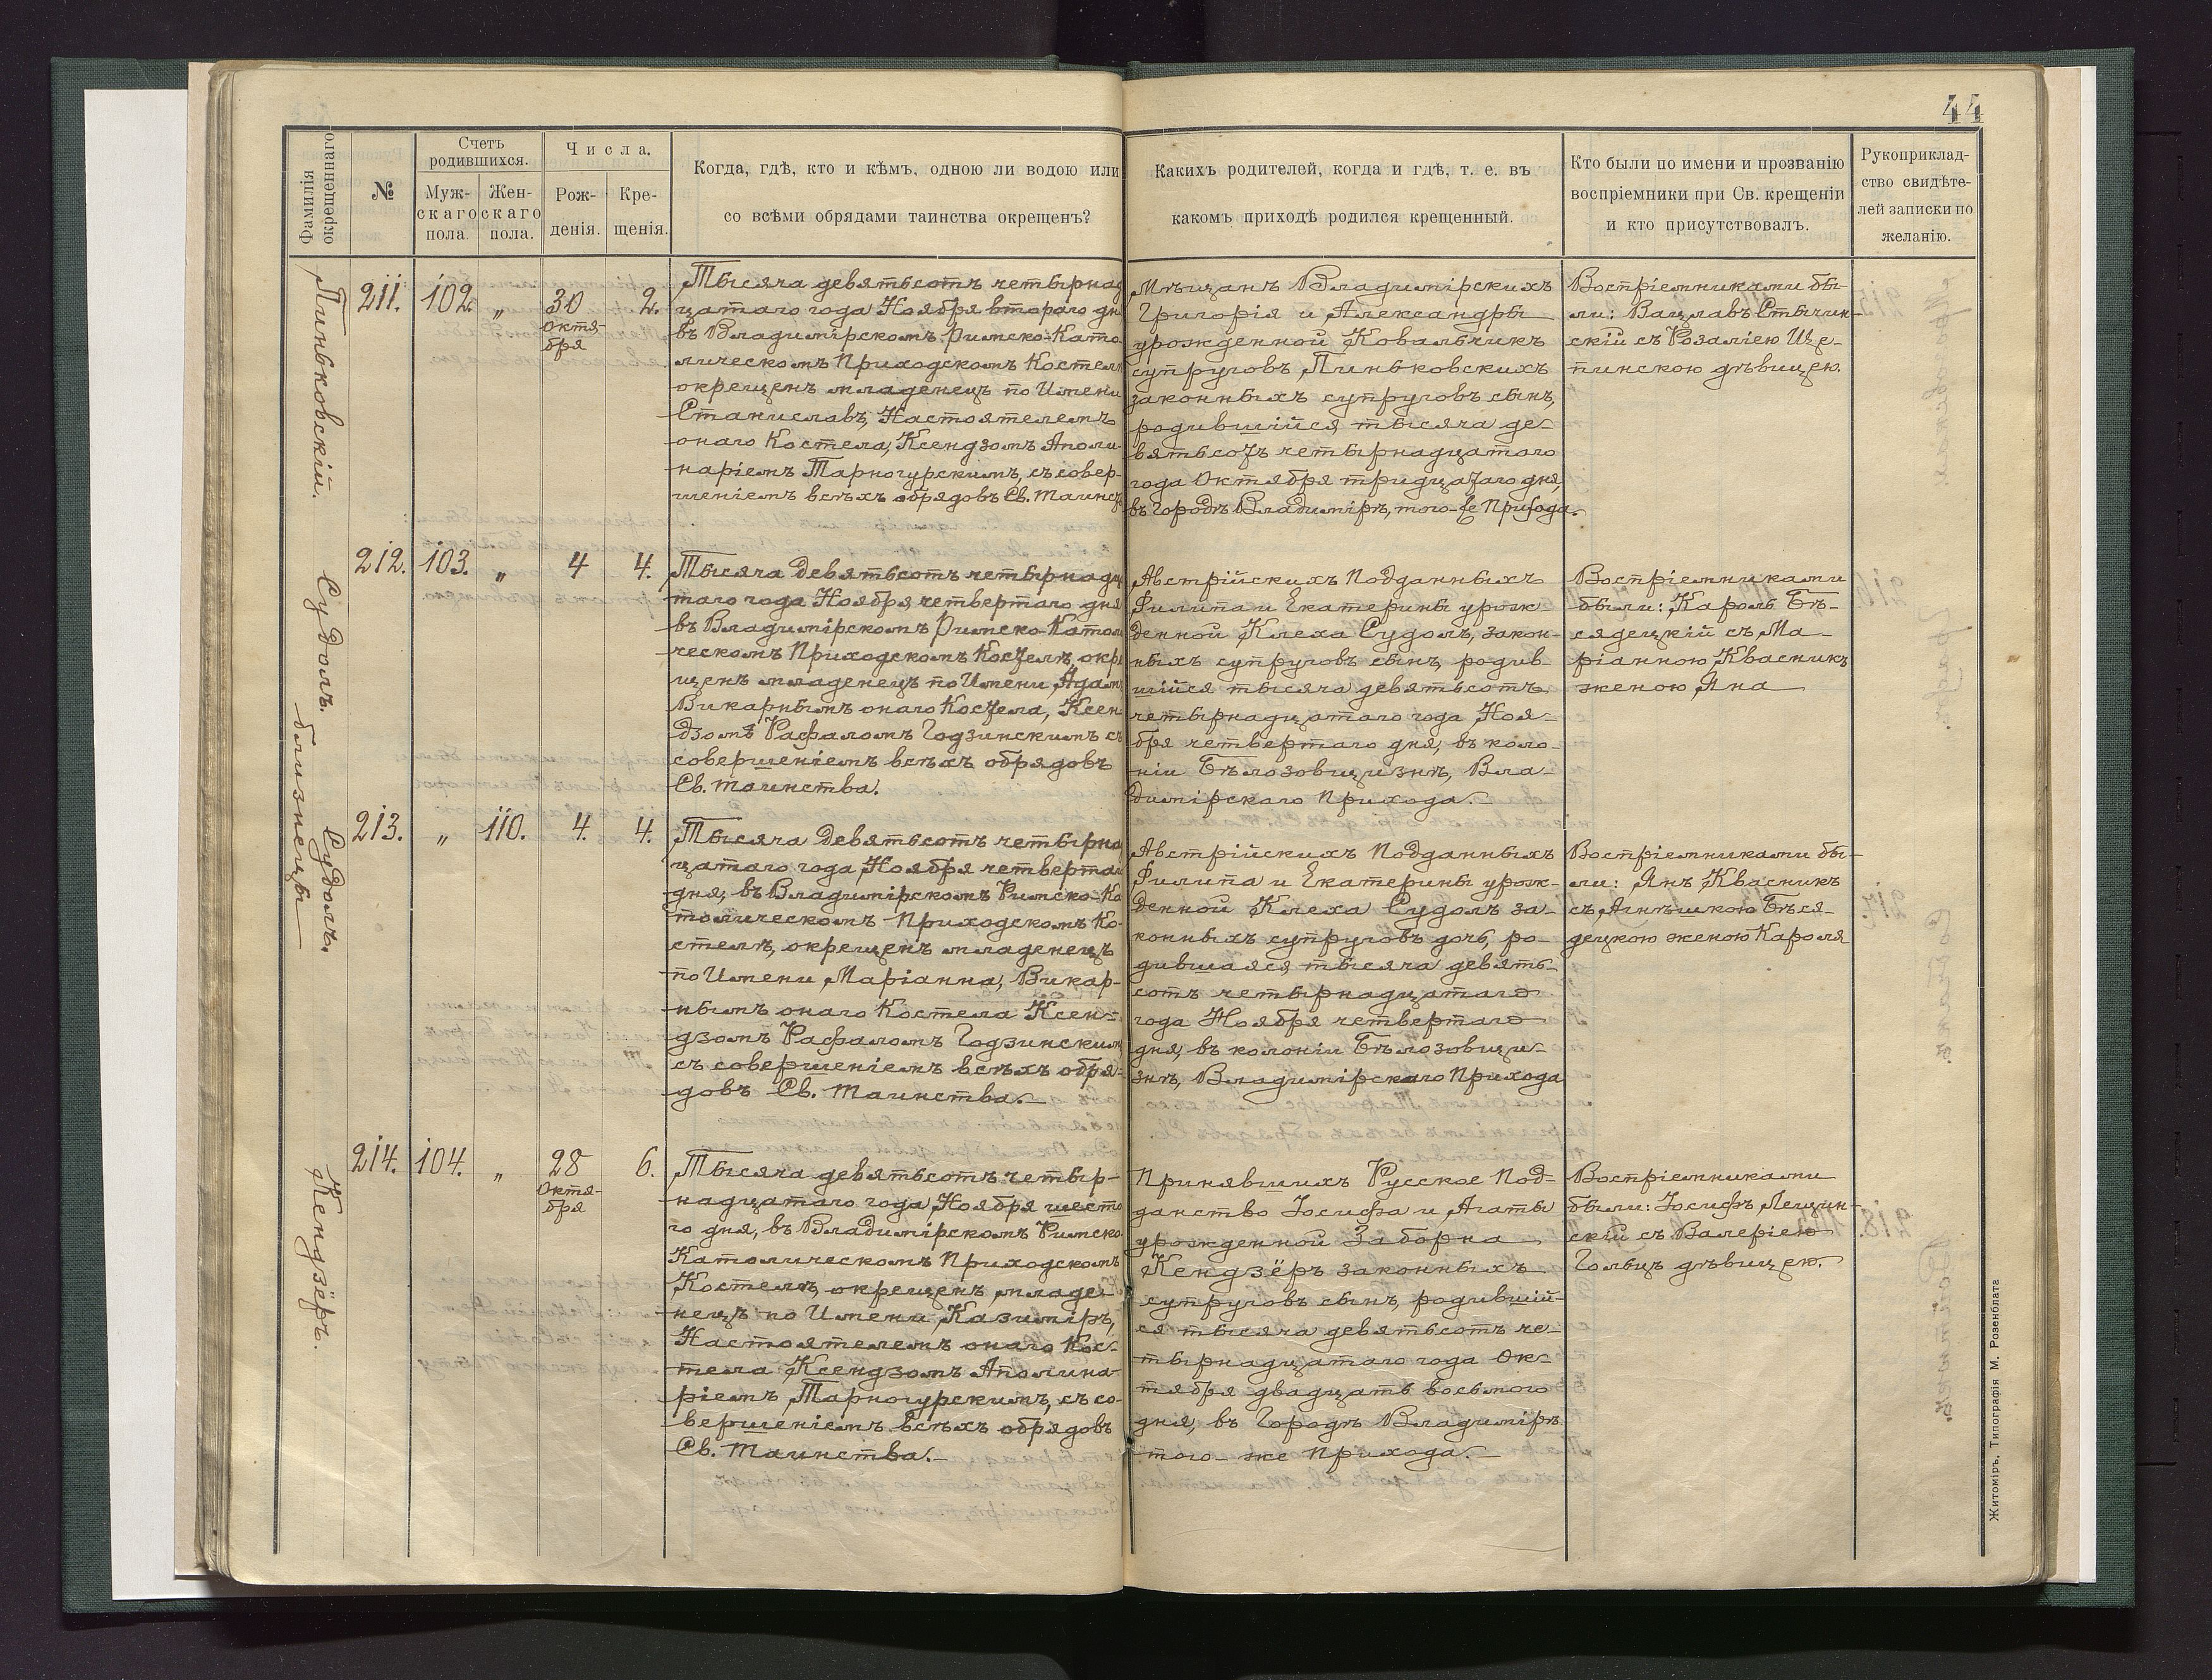 44
Фамилія окрещеннаго
№
Счетъ родившихся.
Муж-
скаго
пола.
Жен-
скаго
пола.
Числа.
Рож-
денія.
Кре-
щенія.
Когда, гдѣ, кто и кѣмъ, одною ли водою или
со всѣми обрядами таинства окрещенъ?
Какихъ родителей, когда и гдѣ, т. е. въ
какомъ приходѣ родился крещенный.
Кто были по имени и прозванію
воспріемники при Св. крещеніи
и кто присутствовалъ.
Рукоприклад-
ство свидѣте-
лей записки по
желанію.
Пиньковскій.
211. 102. „ 30 2.
октя-
бря
Тысяча девятьсотъ четырнад
цатаго года Ноября втораго дн
въ Владимірскомъ Римско-Като
лическомъ Приходскомъ Костел
окрещенъ младенецъ по Имени
Станиславъ, Настоятелемъ
онаго Костела, Ксендзомъ Аполи-
наріемъ Тарногурскимъ, съ совер-
шеніемъ всѣхъ обрядовъ Св. таинст
Мѣщанъ Владимірскихъ
Григорія и Александры
урожденной Ковальчикъ
супруговъ Пиньковскихъ
законныхъ супруговъ сынъ,
родившійся тысяча де-
вятьсотъ четырнадцатаго
года Октября тридцатаго дня,
въ Городѣ Владимірѣ, того-же Прихода.
Воспріемниками бы-
ли: Вацлавъ Стычин-
скій съ Розаліею Ще-
пинскою дѣвицею.
Судолъ.
близнецы
212. 103. „ 4 4.
Тысяча девятьсотъ четырнадц
таго года Ноября четвертаго дня
въ Владимірскомъ Римско-Катол
ческомъ Приходскомъ Костелѣ, окре
щенъ младенецъ по Имени Адам
Викарнымъ онаго Костела, Ксен
дзомъ Рафаломъ Годзинскимъ съ
совершеніемъ всѣхъ обрядовъ
Св. таинства.
Австрійскихъ Подданныхъ
Филипа и Екатерины урож
денной Клеха Судолъ, закон-
ныхъ супруговъ сынъ, родив-
шійся тысяча девятьсотъ
четырнадцатаго года Ноя-
бря четвертаго дня, въ коло-
ніи Бѣлозовщизнѣ, Вла-
димірскаго Прихода.
Воспріемниками
были: Кароль Бѣ-
сядецкій съ Ма-
ріанною Квасникъ
женою Яна
Судолъ.
213. „ 110. 4. 4.
Тысяча девятьсотъ четырна
цатаго года Ноября четвертаг
дня, въ Владимірскомъ Римско-Ка
толическомъ Приходскомъ Ко-
стелѣ, окрещенъ младенецъ
по Имени Маріанна, Викар-
нымъ онаго Костела Ксен-
дзомъ Рафаломъ Годзинским
съ совершеніемъ всѣхъ обря-
довъ Св. Таинства.
Австрійскихъ Подданныхъ
Филипа и Екатерины урож-
денной Клеха Судолъ за-
конныхъ супруговъ дочь, ро-
дившаяся тысяча девять-
сотъ четырнадцатаго
года Ноября четвертаго
дня, въ колоніи Бѣлозовщи-
знѣ, Владимірскаго Прихода
Воспріемниками бы-
ли: Янъ Квасникъ
съ Агнѣшкою Бѣся-
децкою женою Кароля
Кендзёръ.
214. 104. „ 28 6.
Октя-
бря
Тысяча девятьсотъ четыр-
надцатаго года Ноября шесто
го дня, въ Владимірскомъ Римско-
Католическомъ Приходскомъ
Костелѣ, окрещенъ младе-
нецъ по Имени Казиміръ,
Настоятелемъ онаго Кос-
тела Ксендзомъ Аполина-
ріемъ Тарногурскимъ, съ со-
вершеніемъ всѣхъ обрядовъ
Св. Таинства.
Принявшихъ Русское Под-
данство Іосифа и Агаты
урожденной Заборна
Кендзёръ законныхъ
супруговъ сынъ, родившій-
ся тысяча девятьсотъ че-
тырнадцатаго года Ок-
тября двадцать восьмого
дня, въ Городѣ Владимірѣ
того-же Прихода.
Воспріемниками
были: Іосифъ Лещин-
скій съ Валеріею
Гольцъ дѣвицею.
Житоміръ. Типографія М. Розенблата